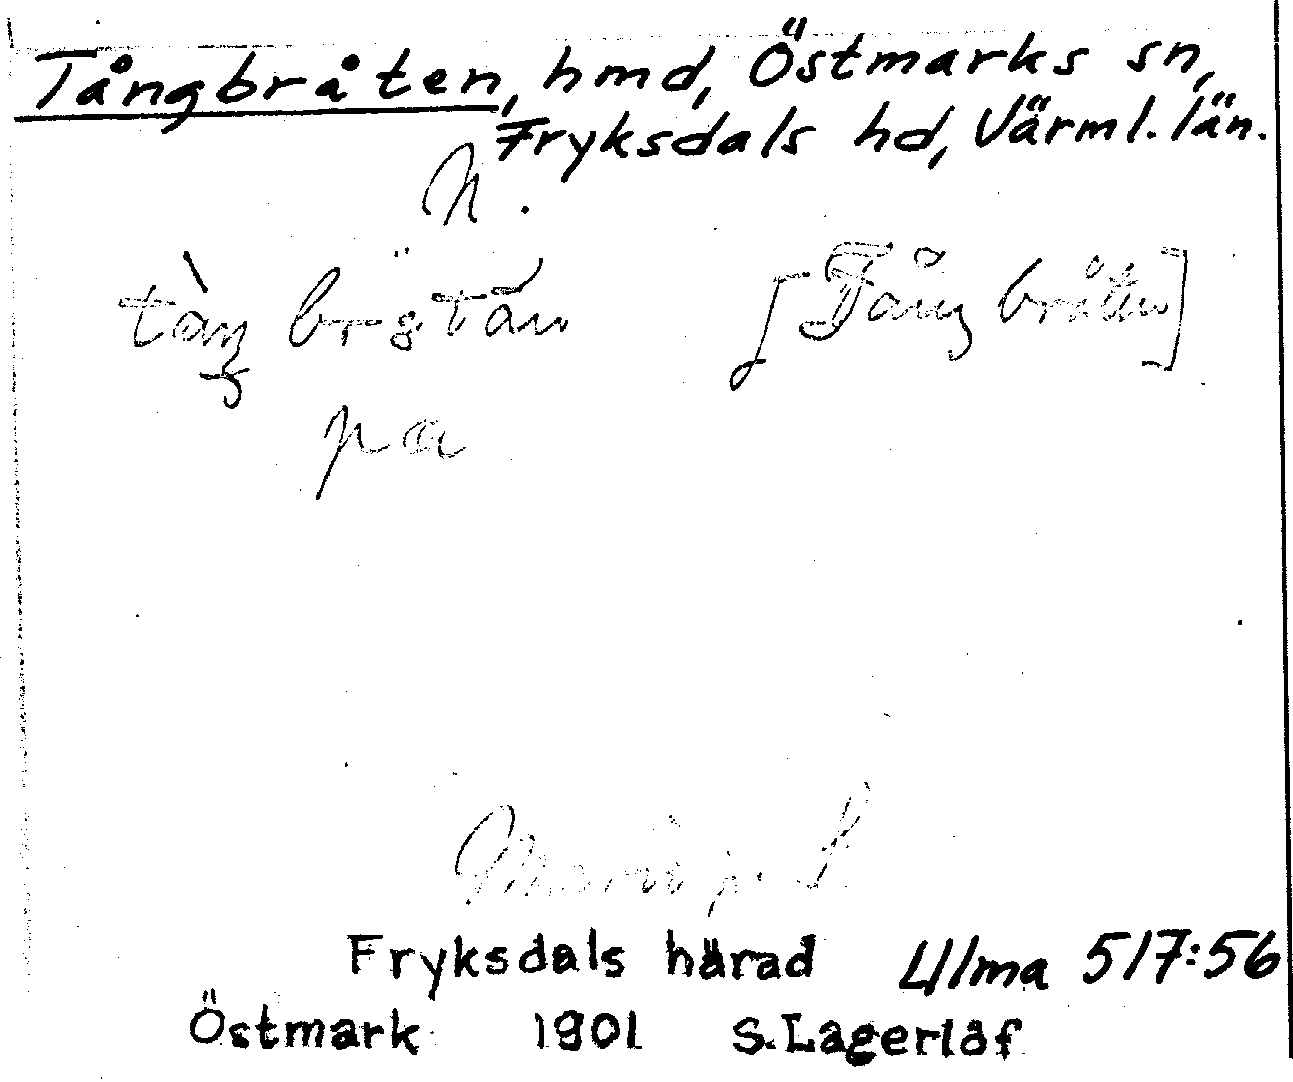 Tångbråten, hmd, Östmarks sn,
Fryksdals hd, Värml. län.
N.
[Tång bråten]
på
Fryksdals härad Ulma 517:56
Östmark 1901 S. Lagerlöf